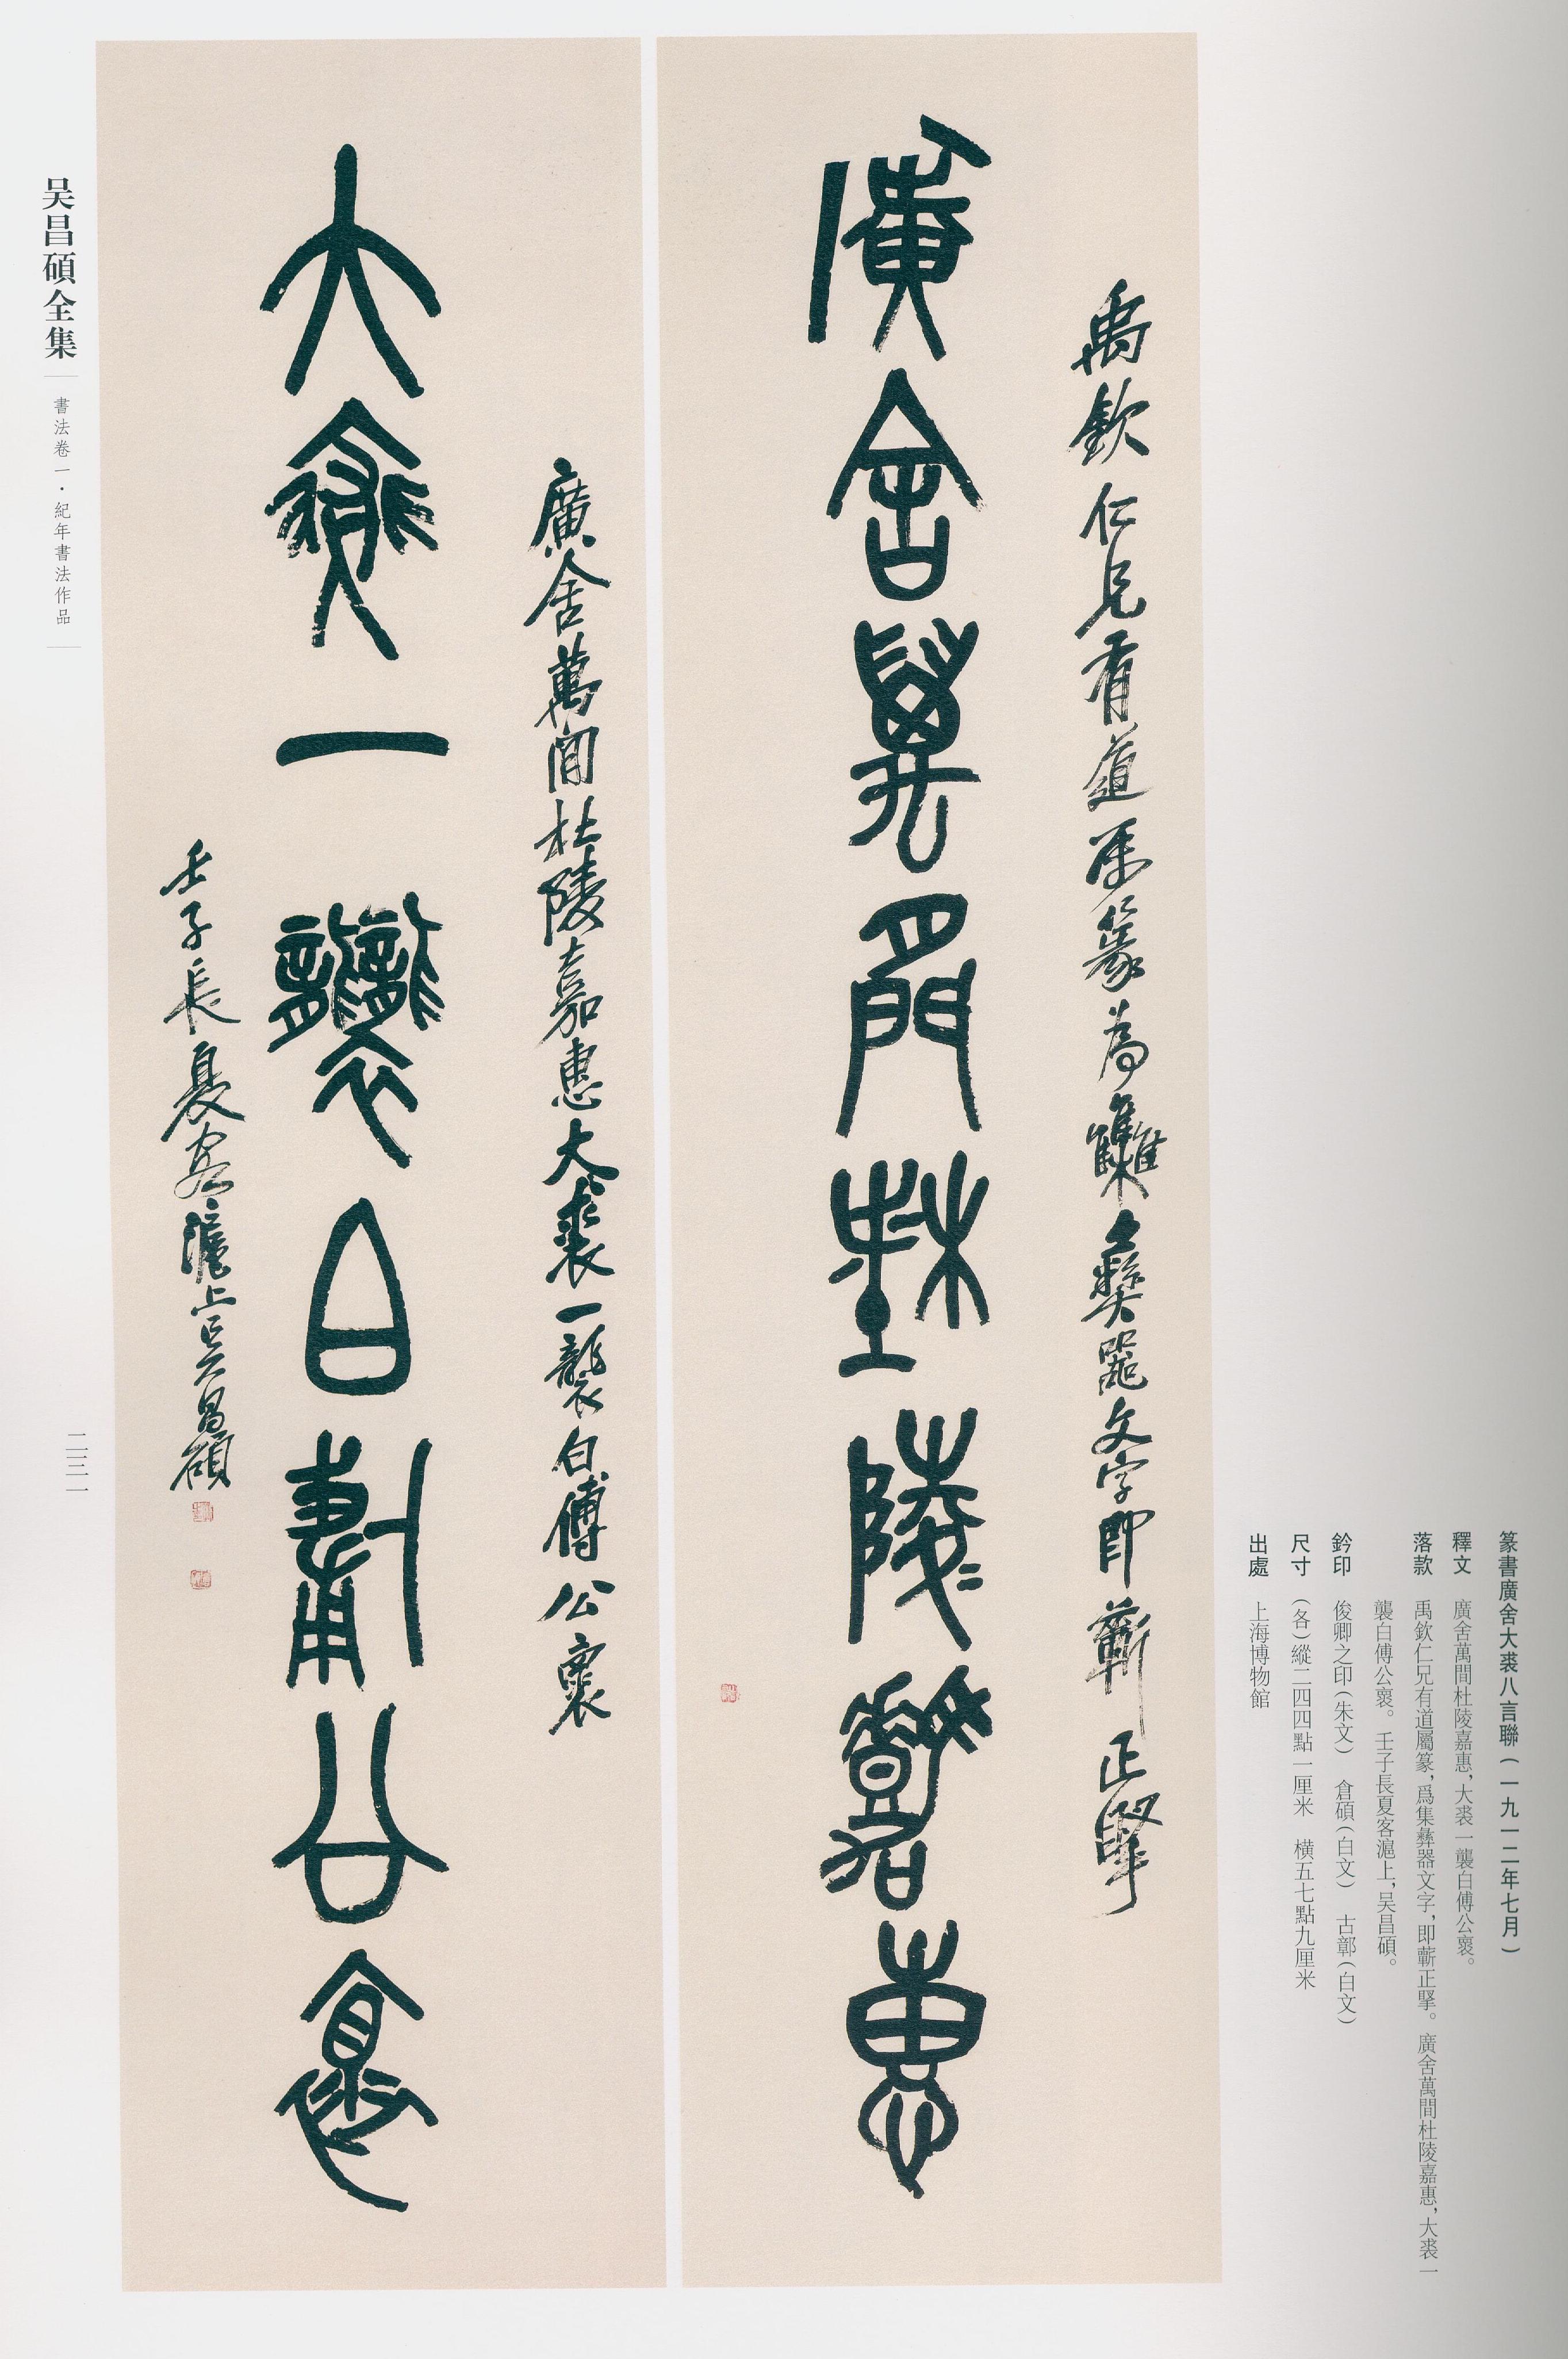 篆書廣舍大裘八言聯（一九一二年七月）
釋文　廣舍萬間杜陵嘉惠，大裘一襲白傅公褱。
落款　禹欽仁兄有道屬篆，爲集彝器文字，即蘄正擘。廣舍萬間杜陵嘉惠，大裘一
襲白傅公褱。壬子長夏客滬上，吴昌碩。
鈐印　俊卿之印（朱文）　倉碩（白文）　古鄣（白文）
尺寸　（各）縱二四四點一厘米　横五七點九厘米
出處　上海博物館
禹欽仁兄有道屬篆為雧彝器文字即蘄正擘
廣舍萬間杜陵嘉惠
廣舍萬間杜陵嘉惠大裘一襲白傅公褱
大裘一襲白傅公褱
壬子長夏客滬上吴昌碩
吴昌碩全集
書法卷一·紀年書法作品
二三一